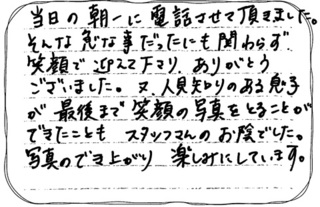 当日の朝一に電話させて頂きました。
そんな急な事だったにも関わらず、
笑顔で迎えて下さり、ありがとう
ございました。又、人見知りのある息子
が最後まで笑顔の写真をとることが
できたことも スタッフさんのお陰でした。
写真のでき上がり 楽しみにしています。